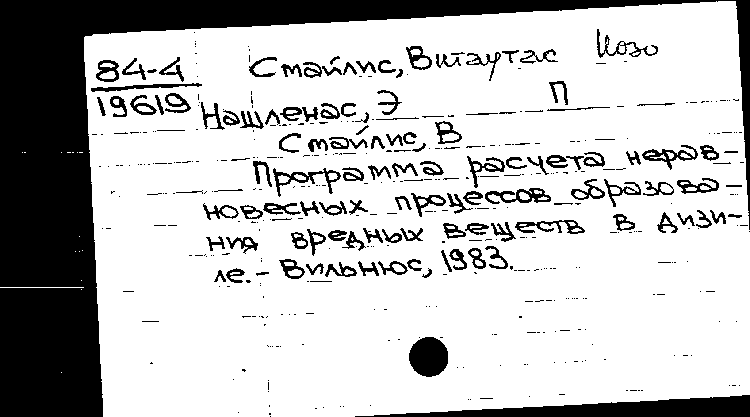 84-4 Смайлис, Витаутас Иозо
19619 Нашленас, Э П
Смайлис, В
Программа расчета нерав-
новесных процессов образова-
ния вредных веществ в дизи-
ле. - Вильнюс, 1983.